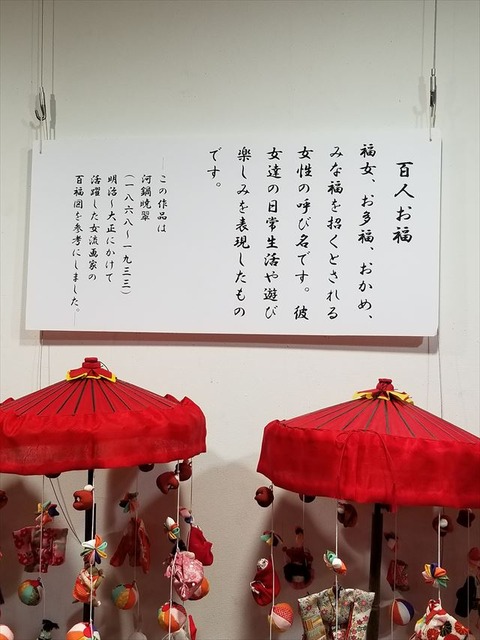 百人お福
福女、お多福、おかめ、
みな福を招くとされる
女性の呼び名です。彼
女達の日常生活や遊び
楽しみを表現したもの
です。
―この作品は
河鍋暁翠
(一八六八~一九三三)
明治~大正にかけて
活躍した女流画家の
百福図を参考にしました。―